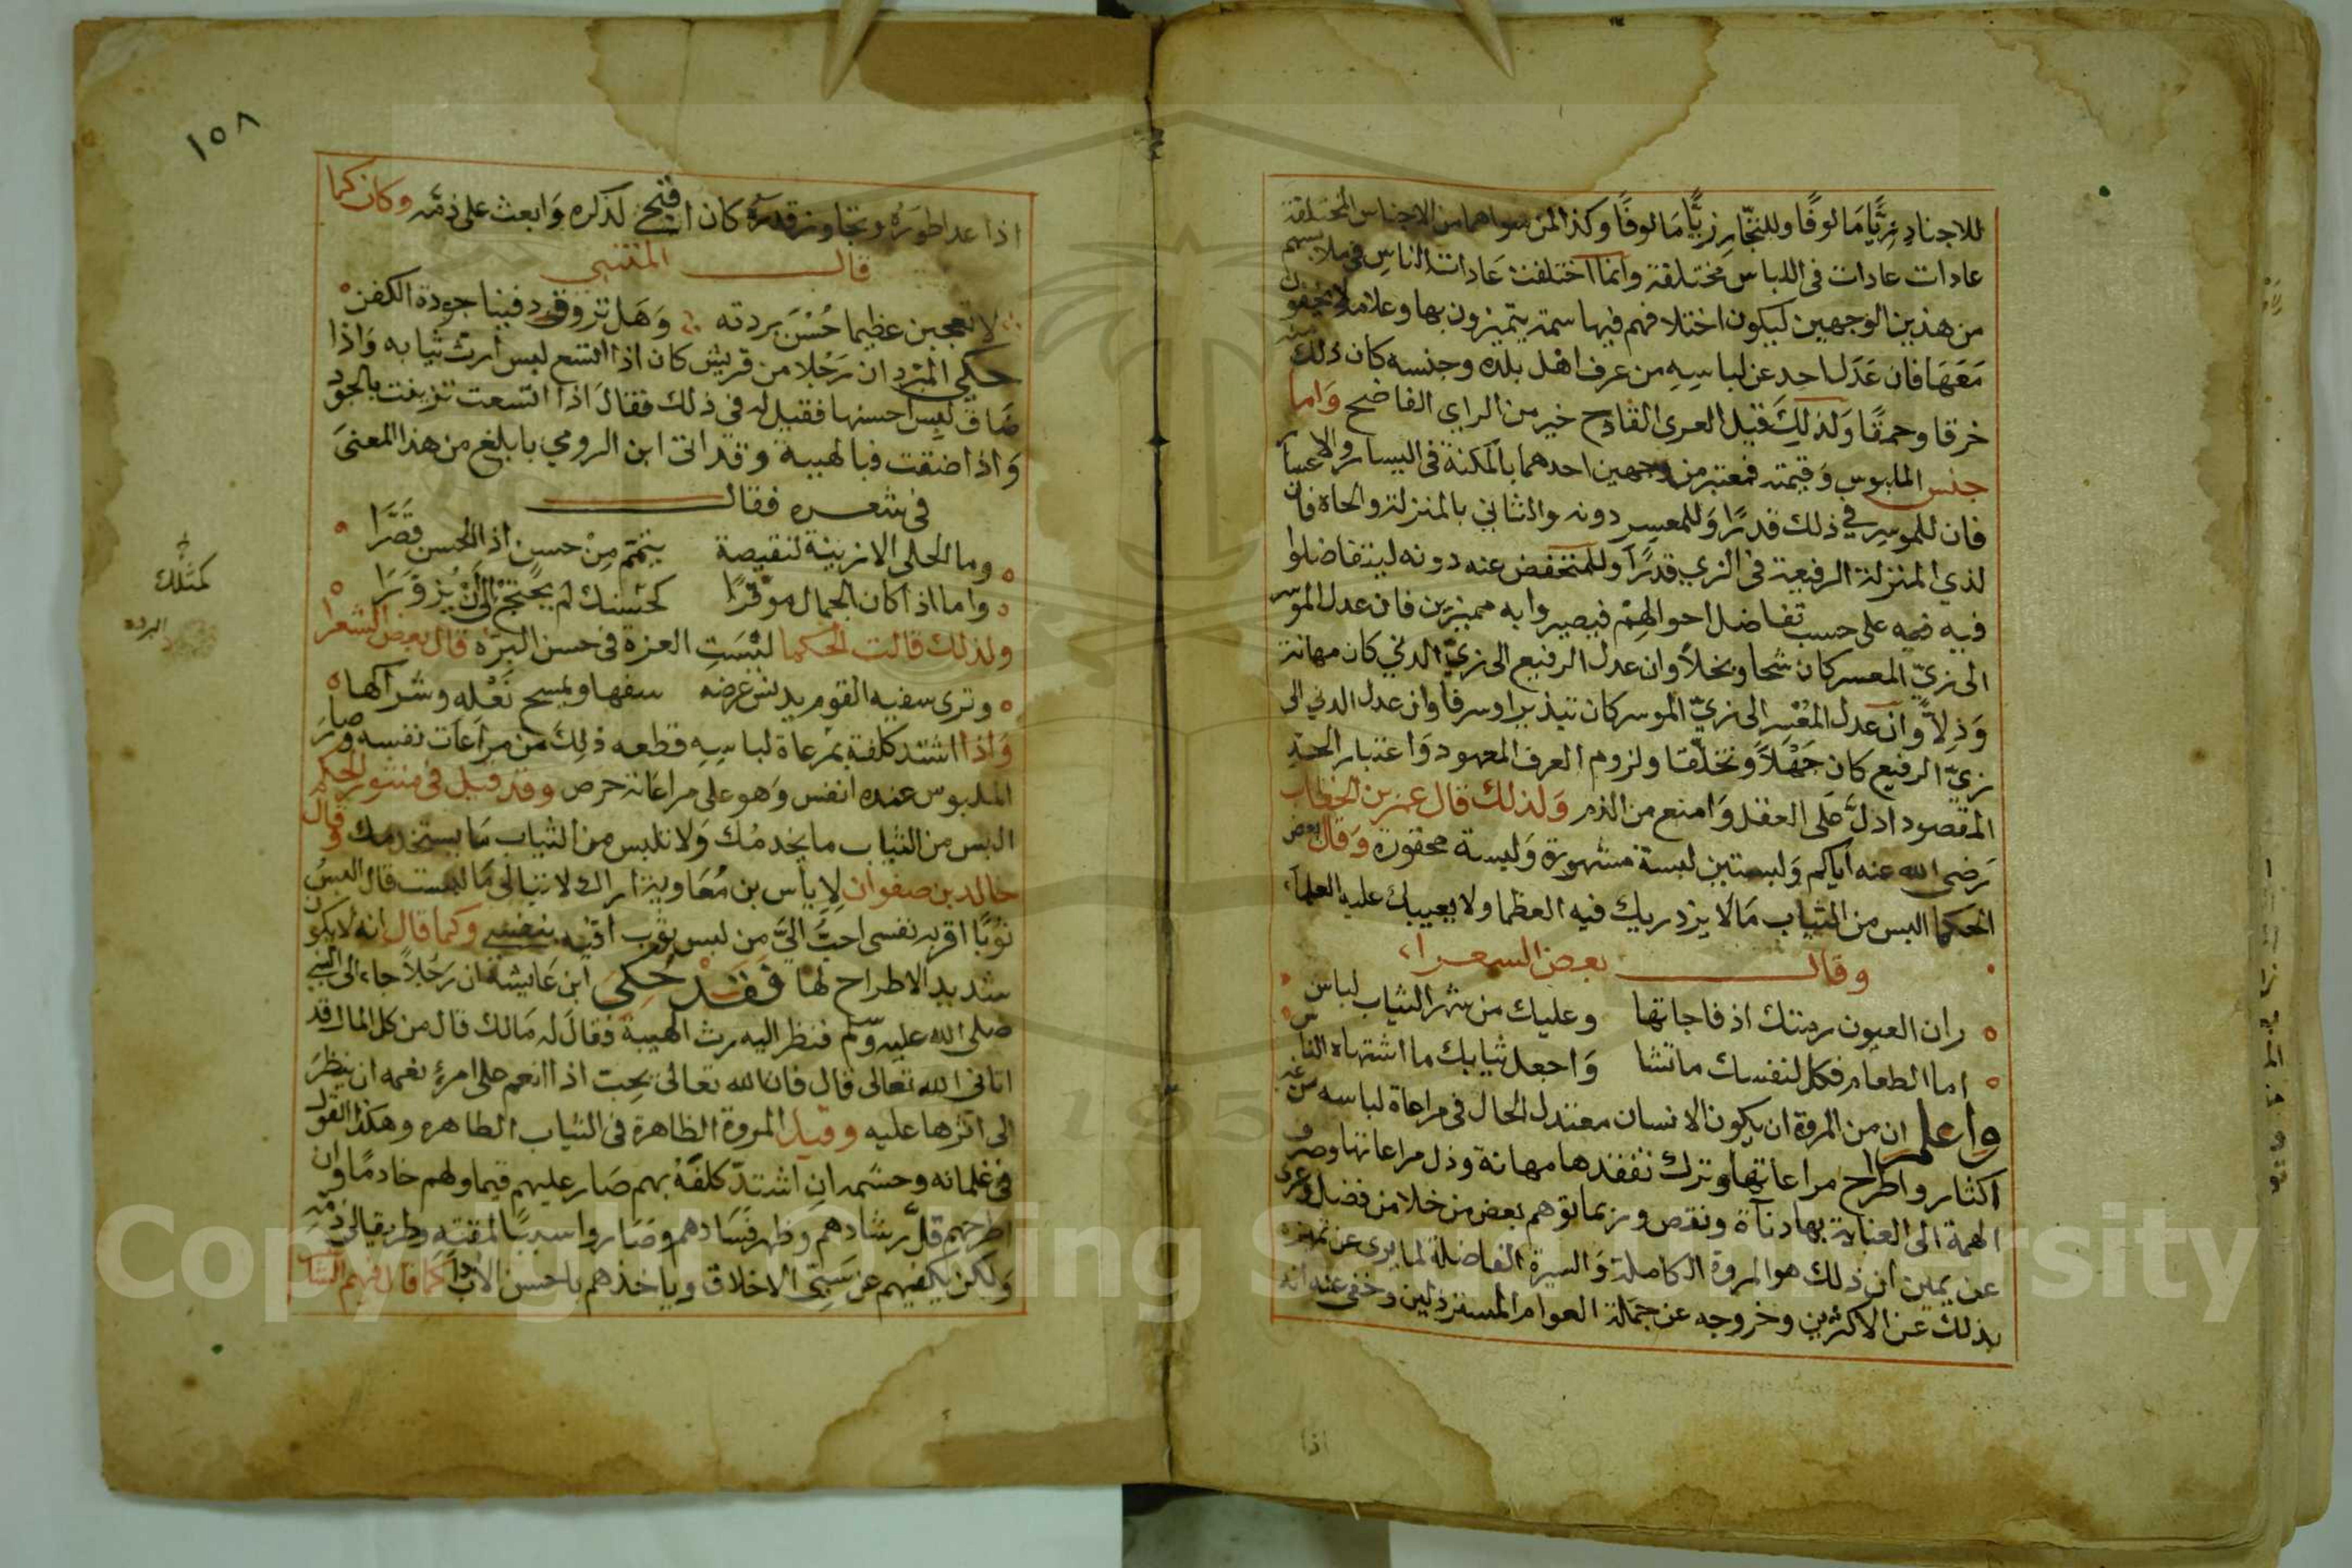 للاجناد زيًّا مَالوفًا وللتجّار زيًّا مَالوفًا وكذا لمن سواهما من الاجناس المختلفة
عادات عادات فى اللباس مختلفة وانما اختلفت عَادات الناسِ فى ملابسهم
من هذين الوجهين ليكون اختلافهم فيها سمة يتميزون بها وعلامة لا يخفون
مَعَهَا فان عَدَل احد عن لباسِهِ من عرف اهل بلده وجنسه كان ذلك منه
خرقا وحمقًا وَلذلِكَ قيل العرى القادح خير من الراي الفاضح وَاما
جنس الملبوس وَقيمته فمعتبر من وجهين احدهما بالمكنة فى اليسار والاعسار
فان للموسِر فى ذلك قدرًا وَللمعسِر دونه والثانى بالمنزلة والحاه فان
لذي المنزلة الرفيعة فى الزي قدرًا وللمنخفض عنه دونه ليتفاضلوا
فيه فيه على حسب تفاضل احوالهِمْ فيصيروا به مميزين فان عدل الموسر
الى زيّ المعسر كان شحا وبخلاً وان عدل الرفيع الى زيّ الدني كان مهانة
وَذِلاًّ وان عدل المعْسِر الى زيّ الموسر كان تبذيرا وسرفا وان عدل الدني الى
زيّ الرفيع كان جَهْلاً وتخلّقا ولزوم العرف المعهود وَاعتبار الحدّ
المقصود ادلَّ على العقل وَامنع من الذم وَلذلك قال عمر بن الخطاب
رَضى الله عنه اياكم وَلبستين لبسة مشهورة وَلبسة محقورة وَقال بعض
الحكما البس من الثياب مَالَا يزدريك فيه العظما ولا يعيبك عليه العلمآء
وقال بعض الشعراء
ان العيون رمتك اذ فاجاتها وعليك من شهر الثياب لباس
اما الطعام فكل لنفسك ماتشا وَاجعل ثيابك ما اشتهاه الناس
وَاعلم ان من المروة ان يكون الانسان معتدل الحال فى مراعاة لباسه من غير
اكثار واطراح مراعاتها وترك تفقدها مهانة وذل مراعاتها وصرف
الهمة الى العناية بها دنآة ونقص وربما توهم بعض من خلا من فضل وعرى
عن يمين ان ذلك هو المروة الكاملة وَالسيرة الفاضلة لما يرى عن تميزه
بذلك عن الاكثرين وخروجه عن جملة العوام المسترذلين وخفى عنه انه
اذا
١٥٨
اذا عدا طورَهُ وتجاوز قدرَهُ كان اقبح لذكره وَابعث على ذمّه وكان كما
قال المتنبى
لا تعجبن عظيما حُسْنَ بردته وَهَل تروق دفينا جودة الكفن
حكى المبرد ان رَجُلا من قريش كان اذا اتسع لبس ارث ثيابه وَاذا
ضَاق لبِس احسنها فقيل له فى ذلك فقالَ اذا اتسعت تزينت بالجود
وَاذا ضقت فبالهيبة وقد اتى ابن الرومي بابلغ من هذا المعنىَ
فى شعره فقال
وما الحلى الا زينة لنقيصة يتمّم مِنْ حسن اذا الحسن قصَّرَا
واما اذا كان الجمال موقرًا كحُسْنك لم يحتَجْ الى انْ يُزوّرَا
كمثلك
ولذلك قالت الحكما لَيْسَتِ العزة فى حسن البزّه قال بعض الشعرا
البزه
وترى سفيه القوم يدنس عِرضه سفها ويمسح نَعْله وشراكها
وَاذا اشتد كلفة بمرعاة لباسِهِ قطعه ذلِكَ من مراعَات نفسه وصَارَ
الملبوس عنده انفس وَهو على مراعَاته حرص وقد قيل فى منثور الحكم
البس من الثياب ما يخدمُك وَلا تلبس من الثياب مَا يستخدمك وقال
خالد بن صفوان لِاياس بن مُعَاوية اراك لا تبالى مَا لبست قال البسُ
ثوبًا اقى به نفسى احبَّ الىّ من لبس ثوب اقيه بنفسى وكما قال انه لا يكون
شديد الاطراح لها فَقَدْ حُكىَ ابن عَايشة ان رَجُلاً جاء الى النبي
صَلى الله عليه وسلم فنظر اليه رث الهيبة فقالَ له مَالك قال من كل المال قد
اتانى الله تعَالى قال فان الله تعَالى يحب اذا انعم على امرئ نعمه ان ينظرَ
الى اثرها عليه وقيل المروة الظاهرة فى الثياب الطاهره وهكذا القول
فى غلمانه وحشمه ان اشتدّ كلفَهُ بهم صَار عليهم قيما ولهم خادمًا وان
اطرحهم قلَّ رشادهم وَظهر فسَادهم وصَاروا سببًا لمقته وطريقا الى ذمّه
وَلكن يكفيهم عن سَيّئ الاخلاق وياخذهم باحسن الادب كما قال فيهم الشاعر